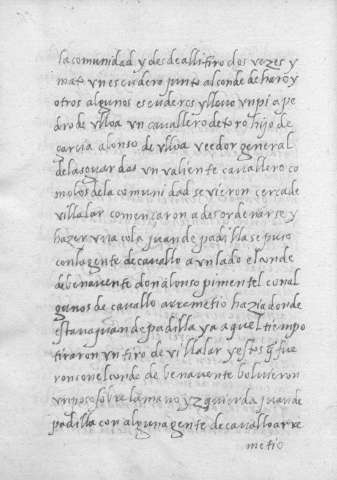 la comunidad y desde alli tiro dos vezes y
mato vn escudero junto al conde de haro y
otros algunos escuderos y lleuo vn pi a pe
dro de vlloa vn cauallero de toro hijo de
garcia alonso de vlloa veedor general
de las guardas vn valiente cauallero co
mo los de la comunidad se vieron cerca de
villalar començaron a desordenarse y
hazer vna cola juan de padilla se puso
con la gente de cauallo a vn lado el conde
de benauente don alonso pimentel con al
gunos de cauallo arremetio hazia donde
estaua juan de padilla ya a quel tiempo
tiraron vn tiro de villalar y estos q̃ fue
ron con el conde de benauente boluieron
vn poco sobre la mano yzquierda juan de
padilla con alguna gente de cauallo arre
metio